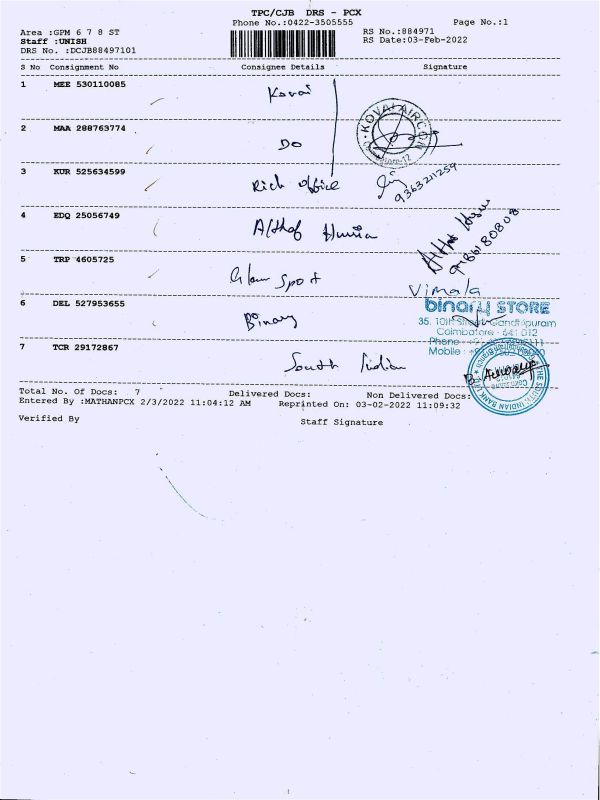 TPC/CJB DRS - PCX
Phone No.:0422-3505555
Page No.:1
Area :GPM 6 7 8 ST
RS No.:884971
Staff :UNISH
RS Date:03-Feb-2022
DRS No. :DCJB88497101
S No Consignment No Consignee Details Signature
1 MEE 530110085 Kovai
KOVAI AIRCON
2 MAA 288763774 Do
3 KUR 525634599 Rich Office
9363211259
4 EDQ 25056749 Althaf
5 TRP 4605725 Glam Sport
Vimala
6 DEL 527953655 Binary
binary STORE
35, 10th Street, Gandhipuram
Coimbatore - 641 012
Phone
Mobile :
7 TCR 29172867 South Indian
THE SOUTH INDIAN BANK
Total No. Of Docs: 7 Delivered Docs: Non Delivered Docs:
Entered By :MATHANPCX 2/3/2022 11:04:12 AM Reprinted On: 03-02-2022 11:09:32
Verified By Staff Signature